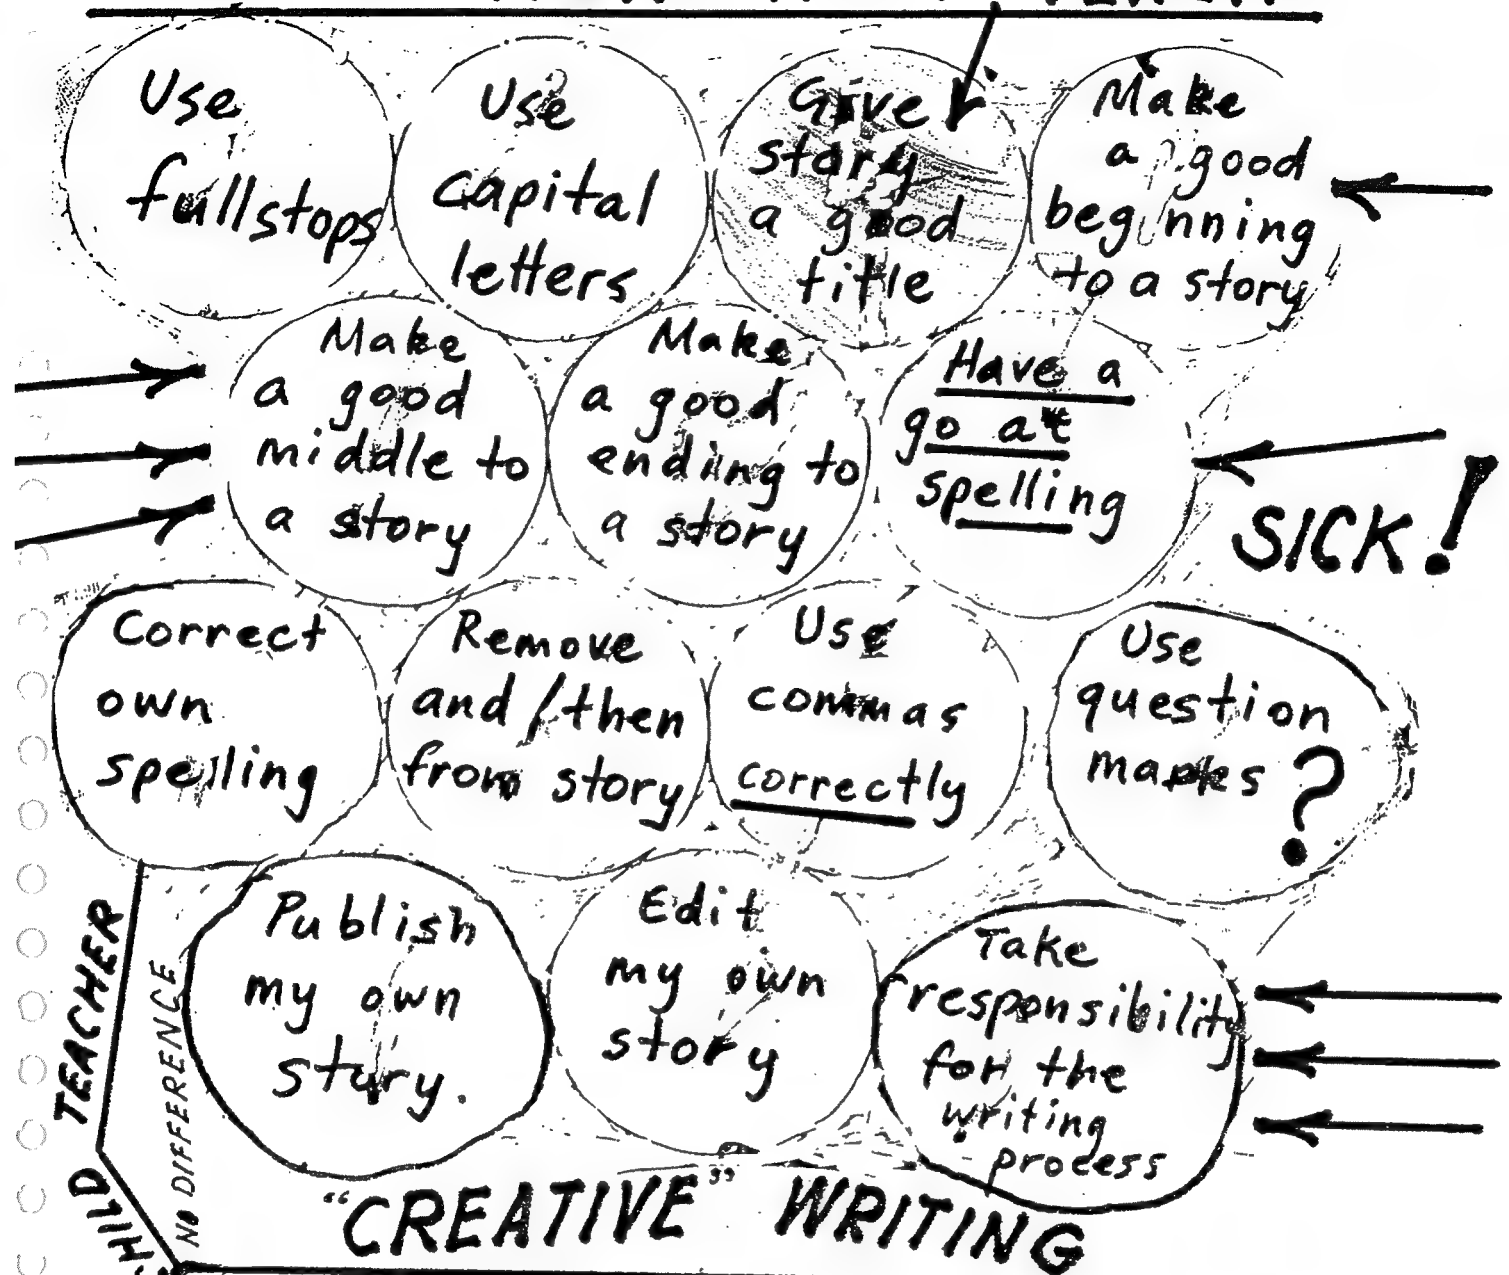 Use
fullstops
Use
capital
letters
Give
story
a good
title
Make
a good
beginning
to a story
Make
a good
middle to
a story
Make
a good
ending to
a story
Have a
go at
spelling
SICK!
Correct
own
spelling
Remove
and/then
from story
Use
commas
correctly
Use
question
marks ?
Publish
my own
story.
Edit
my own
story
Take
responsibility
for the
writing
process
TEACHER
CHILD
NO DIFFERENCE
"CREATIVE" WRITING